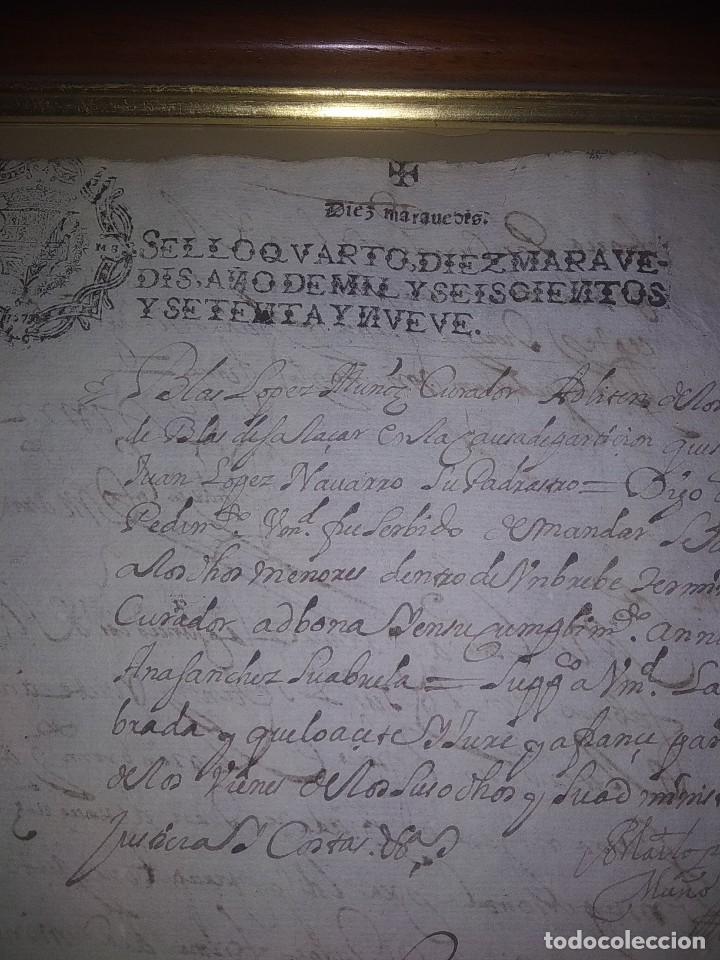 Diez marauedis.
SELLO QVARTO, DIEZ MARAVE-
DIS, AÑO DE MIL Y SEISCIENTOS
Y SETENTA Y NVEVE.
Blas Lopez Muñoz Curador Adliten de los
de Blas de salaçar en la causa de particion que
Juan Lopez Navarro su Padrastro = Dijo
Pedimto Vmd fue serbido de mandar se
a los dhos menores dentro de Vn brebe termi
Curador ad bona y en su cumplimto
Ana sanchez su abuela = suppco a Vmd
brada y que lo acete y Jure y afiançe
de los Vienes de los susodhos y su adminis
Justicia y Costas &a
Muño
todocoleccion
todocoleccion.net